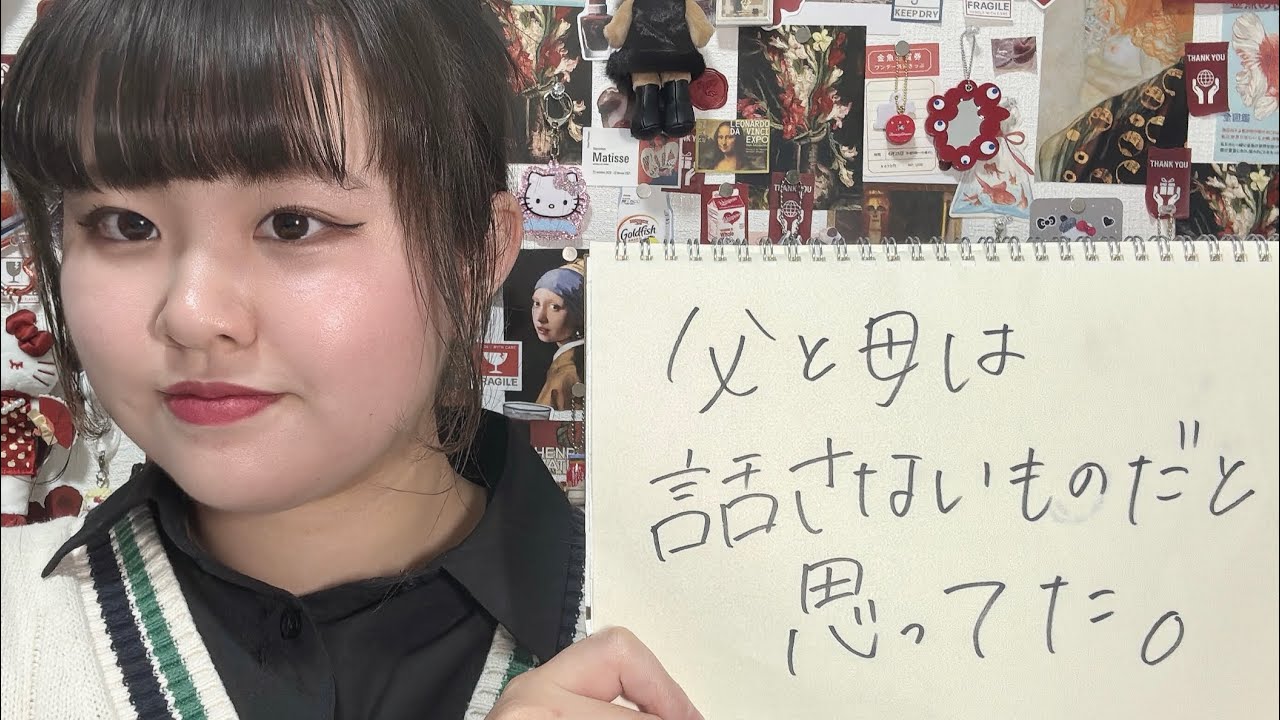 父と母は
話さないものだと
思ってた。
KEEP DRY
FRAGILE
THANK YOU
LEONARDO
DA VINCI
EXPO
Matisse
THANK YOU
THANK YOU
Goldfish
FRAGILE